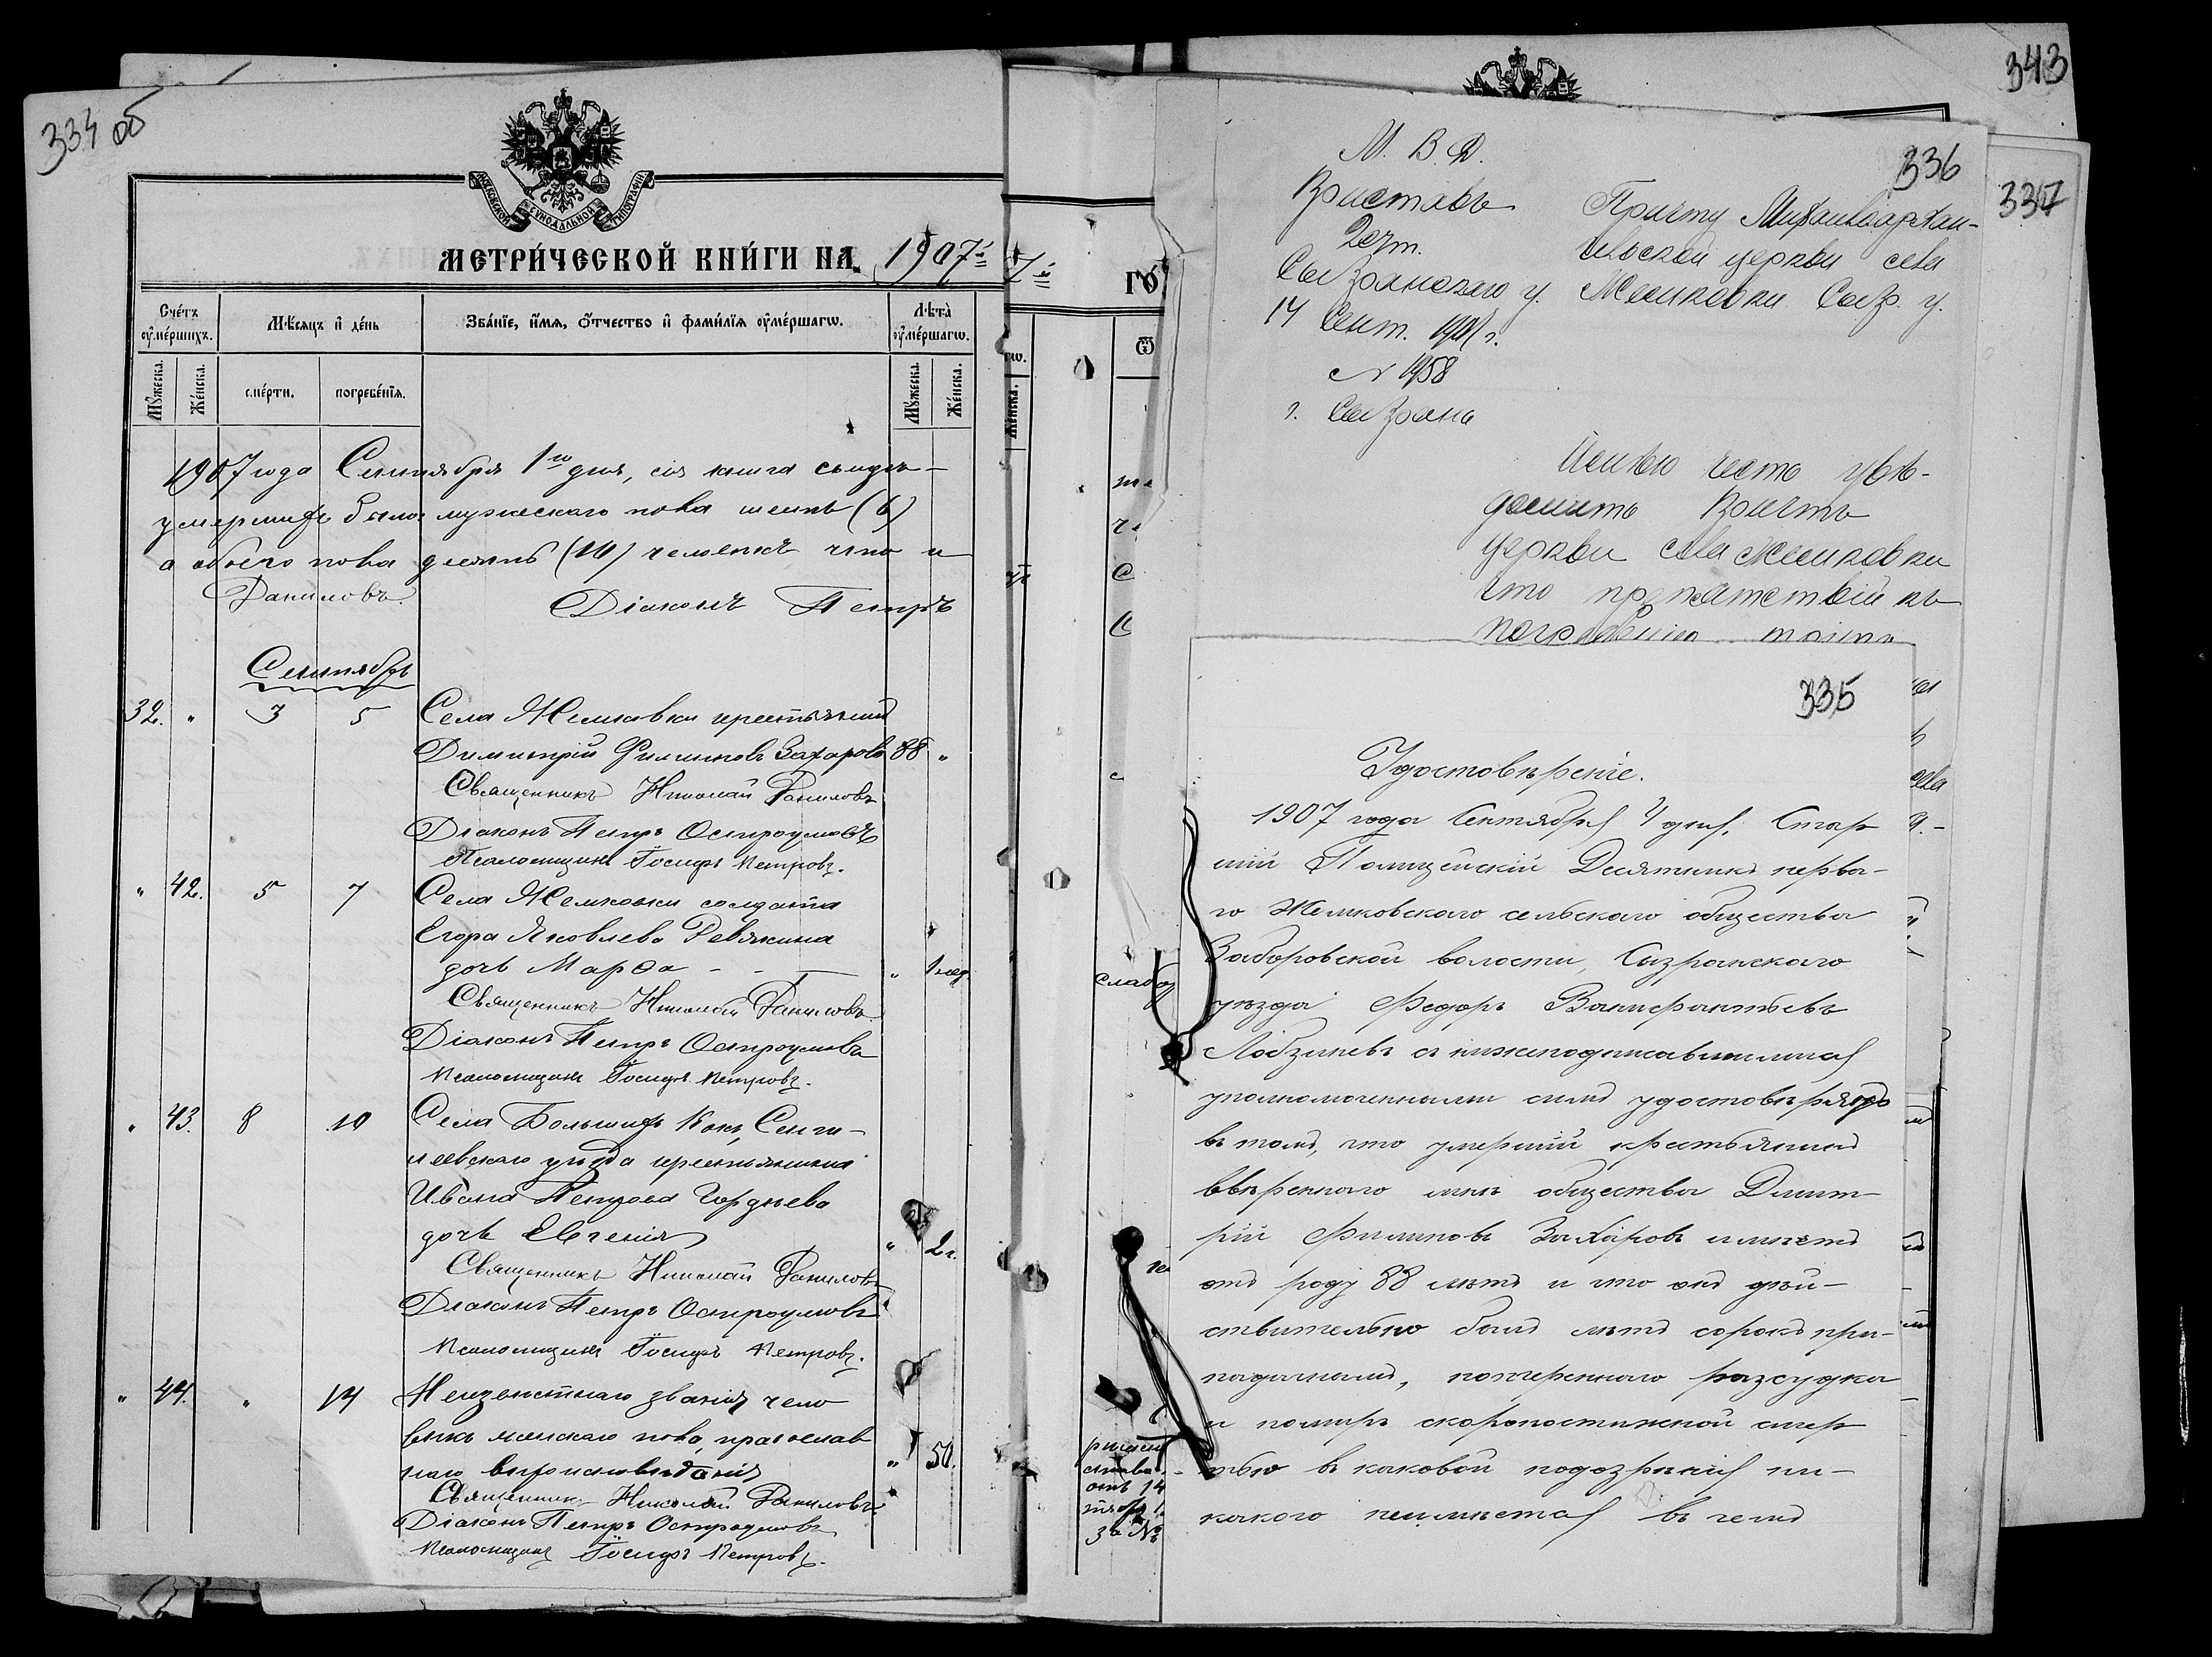 334 об
МОСКОВСКОЙ СѴНОДАЛЬНОЙ ТИПОГРАФІИ
МЕТРИ́ЧЕСКОЙ КНИ́ГИ НА 1907й
Сче́тъ ᲂу҆ме́ршихъ.
Мѣ́сяцъ и҆ де́нь
Зва́нїе, и҆́мя, ѻ҆́тчество и҆ фами́лїя ᲂу҆ме́ршагѡ.
Лѣ́та ᲂу҆ме́ршагѡ.
Мꙋ́жеска. Же́нска.
сме́рти. погребе́нїя.
Мꙋ́жеска. Же́нска.
1907 года Сентября 1го дня, сія книга свидѣ-
умершихъ было: мужескаго пола шесть (6)
а обоего пола десять (10) человѣкъ что и
Даниловъ. Діаконъ Петръ
Сентябрь
32. " 3 5 Села Жемковки крестьянинъ
Димитрій Филиповъ Захаровъ 88 "
Священникъ Николай Даниловъ
Діаконъ Петръ Остроумовъ
Псаломщикъ Іосифъ Петровъ.
" 42. 5 7 Села Жемковки солдата
Егора Яковлева Ревякина
дочь Марѳа - - — " 1 нед.
Священникъ Николай Даниловъ
Діаконъ Петръ Остроумовъ
Псаломщикъ Іосифъ Петровъ.
" 43. 8 10 Села Большихъ Кокъ, Сенги-
леевскаго уѣзда крестьянина
Ивана Петрова Гордѣева
дочь Евгенія " 2 г.
Священникъ Николай Даниловъ
Діаконъ Петръ Остроумовъ
Псаломщикъ Іосифъ Петровъ.
" 44. " 14 Неизвѣстнаго званія чело
вѣкъ женскаго пола, православ
наго вѣроисповѣданія " 50.
Священникъ Николай Даниловъ
Діаконъ Петръ Остроумовъ
Псаломщикъ Іосифъ Петровъ.
ГО
Же́нска.
слабо
отъ 14
за №
343
337
336
М. В. Д.
Приставъ
2 ст.
Сызранскаго у.
14 Сент. 1907 г.
№ 1958
г. Сызрань
Причту Михаилоархан-
гельской церкви села
Жемковки Сызр. у.
Имѣю честь увѣ-
домить Причтъ
церкви села Жемковки
что препятствій къ
погребенію
335
Удостовѣреніе.
1907 года Сентября 4 дня, Стар
шій Полицейскій Десятникъ перва-
го Жемковскаго сельскаго общества
Заборовской волости, Сызранскаго
уѣзда Федоръ Ванифантьевъ
Лобзиневъ съ нижеподписавшимися
уполномоченными симъ удостовѣряю
въ томъ, что умершій крестьянинъ
ввѣреннаго мнѣ общества Дмит
рій Филиповъ Захаровъ имѣетъ
отъ роду 88 лѣтъ и что онъ дѣй-
ствительно былъ лѣтъ сорокъ при-
падочнымъ, потереннаго разсудка
и помиръ скоропостижной смер
тью въ каковой подозрѣнія ни-
какого неимѣется въ чемъ